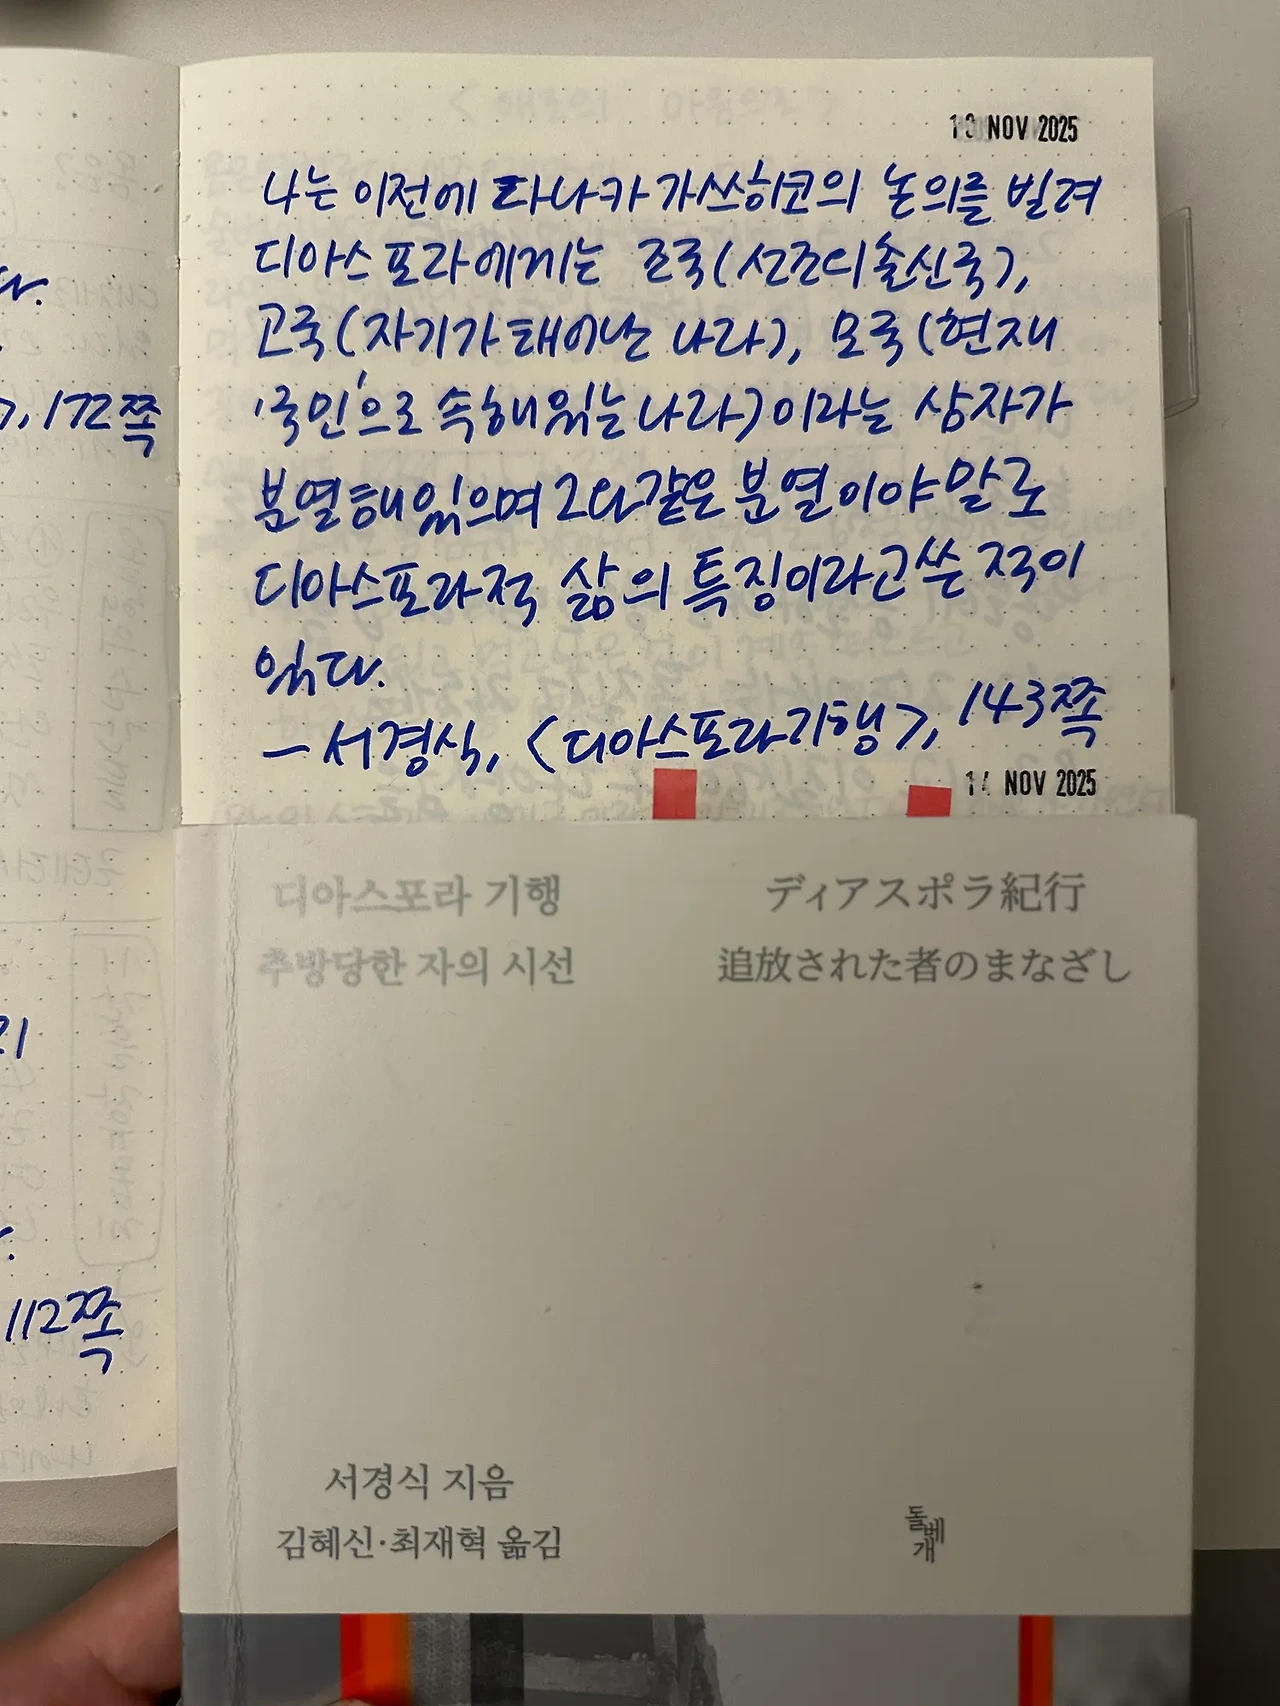 다.
172쪽
나는 이전에 다나카 가쓰히코의 논의를 빌려
디아스포라에게는 조국(선조의 출신국),
고국(자기가 태어난 나라), 모국(현재
'국민'으로 속해 있는 나라)이라는 삼자가
분열해 있으며 그와 같은 분열이야말로
디아스포라적 삶의 특징이라고 쓴 적이
있다.
— 서경식, <디아스포라 기행>, 143쪽
NOV 2025
14 NOV 2025
112쪽
디아스포라 기행
추방당한 자의 시선
ディアスポラ紀行
追放された者のまなざし
서경식 지음
김혜신·최재혁 옮김
돌베개